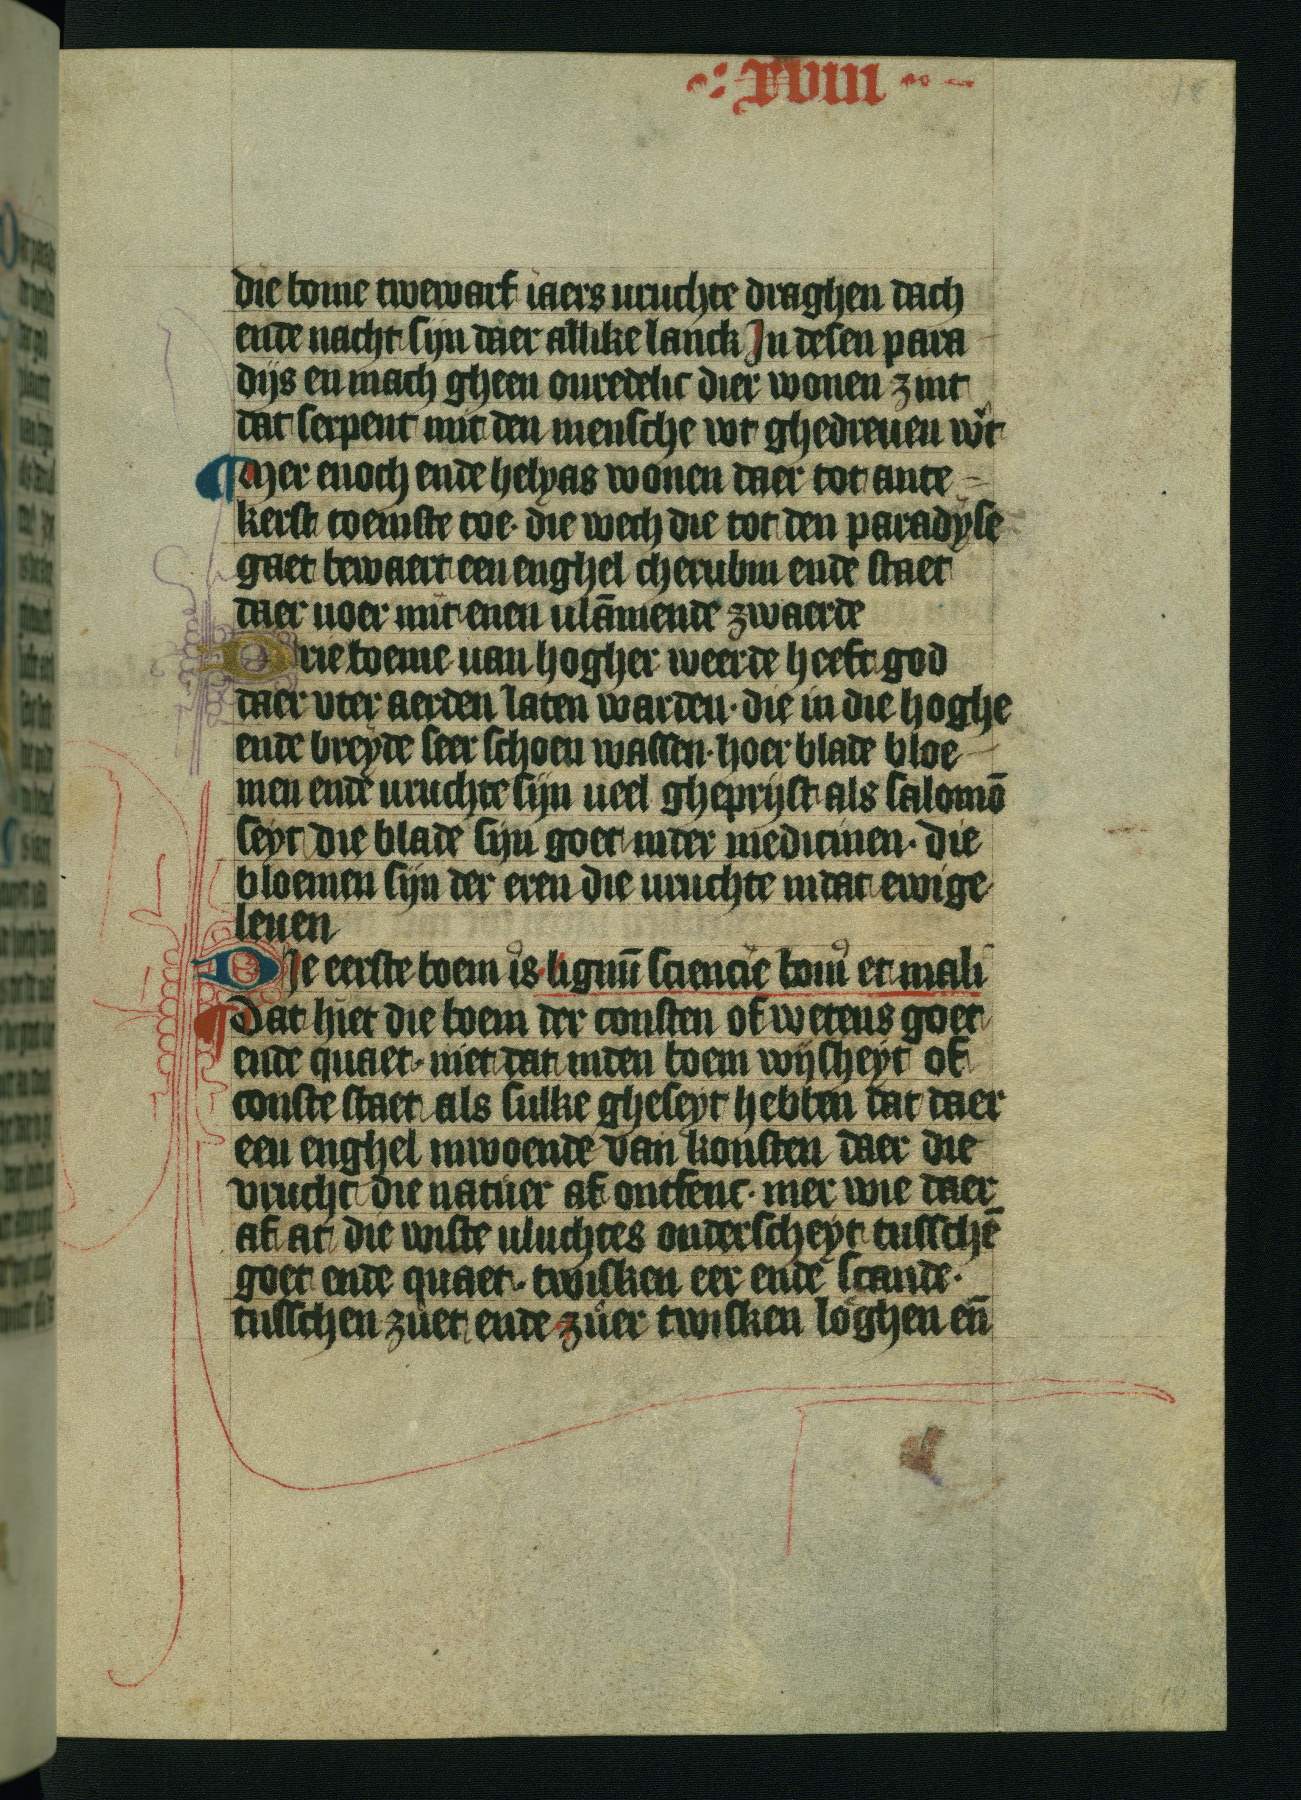 xviii
18
die bome twewarf iaers uruchte draghen dach
ende nacht sijn daer allike lanck In desen para
dijs en mach gheen onredelic dier wonen zint
dat serpent mit den mensche wt ghedreuen wt
¶ Mer enoch ende helyas wonen daer tot ante
kerst toemste toe· die wech die tot den paradyse
gaet bewaert een enghel cherubin ende staet
daer uoer mit enen ulāmende zwaerde
Drie boeme uan hogher weerde heeft god
daer vter aerden laten warden· die in die hoghe
ende breyde seer schoen wassen· hoer blade bloe
men ende uruchte sijn ueel gheprijst als salomō
seyt die blade sijn goet inder medicinen· die
bloemen sijn der eren die uruchte indat ewige
leuen
Die eerste boem is lignū sciencie boni et mali
¶ Dat hiet die boem der consten of wetens goet
ende quaet· niet dat inden boem wijsheyt of
conste staet als sulke gheseyt hebben dat daer
een enghel inwoende van konsten daer die
vrucht die natuer af ontfenc· mer wie daer
af at die wiste uluchtes onderscheyt tusschē
goet ende quaet· twisken eer ende scande·
tusschen zuet ende zuer twisken loghen en̄